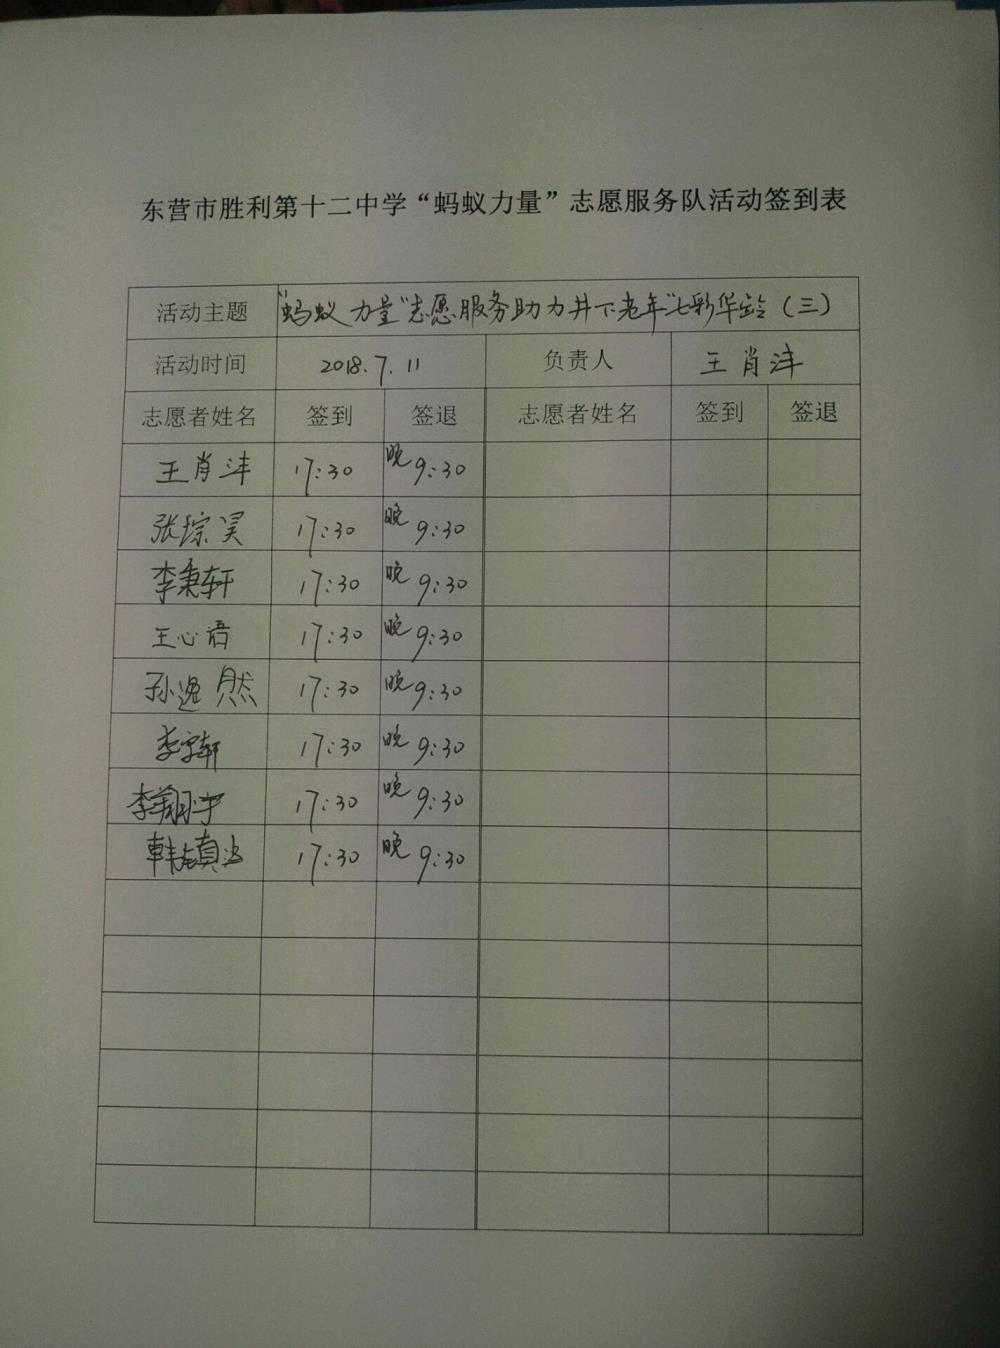 东营市胜利第十二中学“蚂蚁力量”志愿服务队活动签到表
活动主题 “蚂蚁力量”志愿服务助力井下老年“七彩华龄（三）
活动时间 2018.7.11 负责人 王肖沣
志愿者姓名 签到 签退 志愿者姓名 签到 签退
王肖沣 17:30 晚9:30
张琮昊 17:30 晚9:30
李秉轩 17:30 晚9:30
王心语 17:30 晚9:30
孙逸然 17:30 晚9:30
李宇轩 17:30 晚9:30
李翔宇 17:30 晚9:30
韩镇 17:30 晚9:30